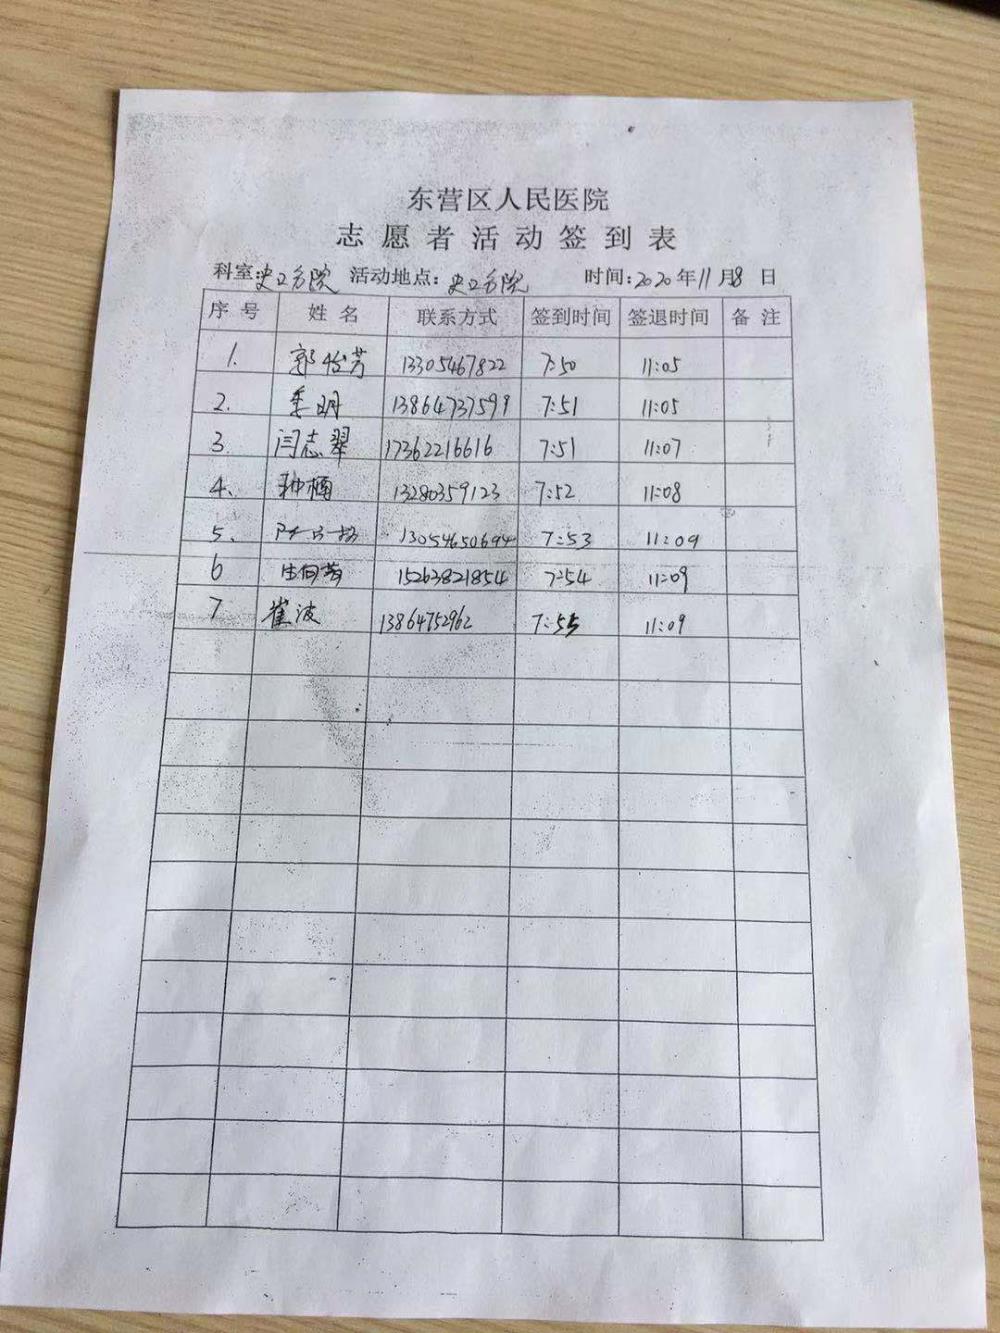 东营区人民医院
志愿者活动签到表
科室:史口分院 活动地点:史口分院 时间:2020年11月8日
序号 姓名 联系方式 签到时间 签退时间 备注
1. 郭怡芳 13305467822 7:50 11:05
2. 季明 13864737599 7:51 11:05
3. 闫志翠 17362216616 7:51 11:07
4. 种楠 13280359123 7:52 11:08
5. 13054650694 7:53 11:09
6 15263821854 7:54 11:09
7 崔波 13864752962 7:55 11:09